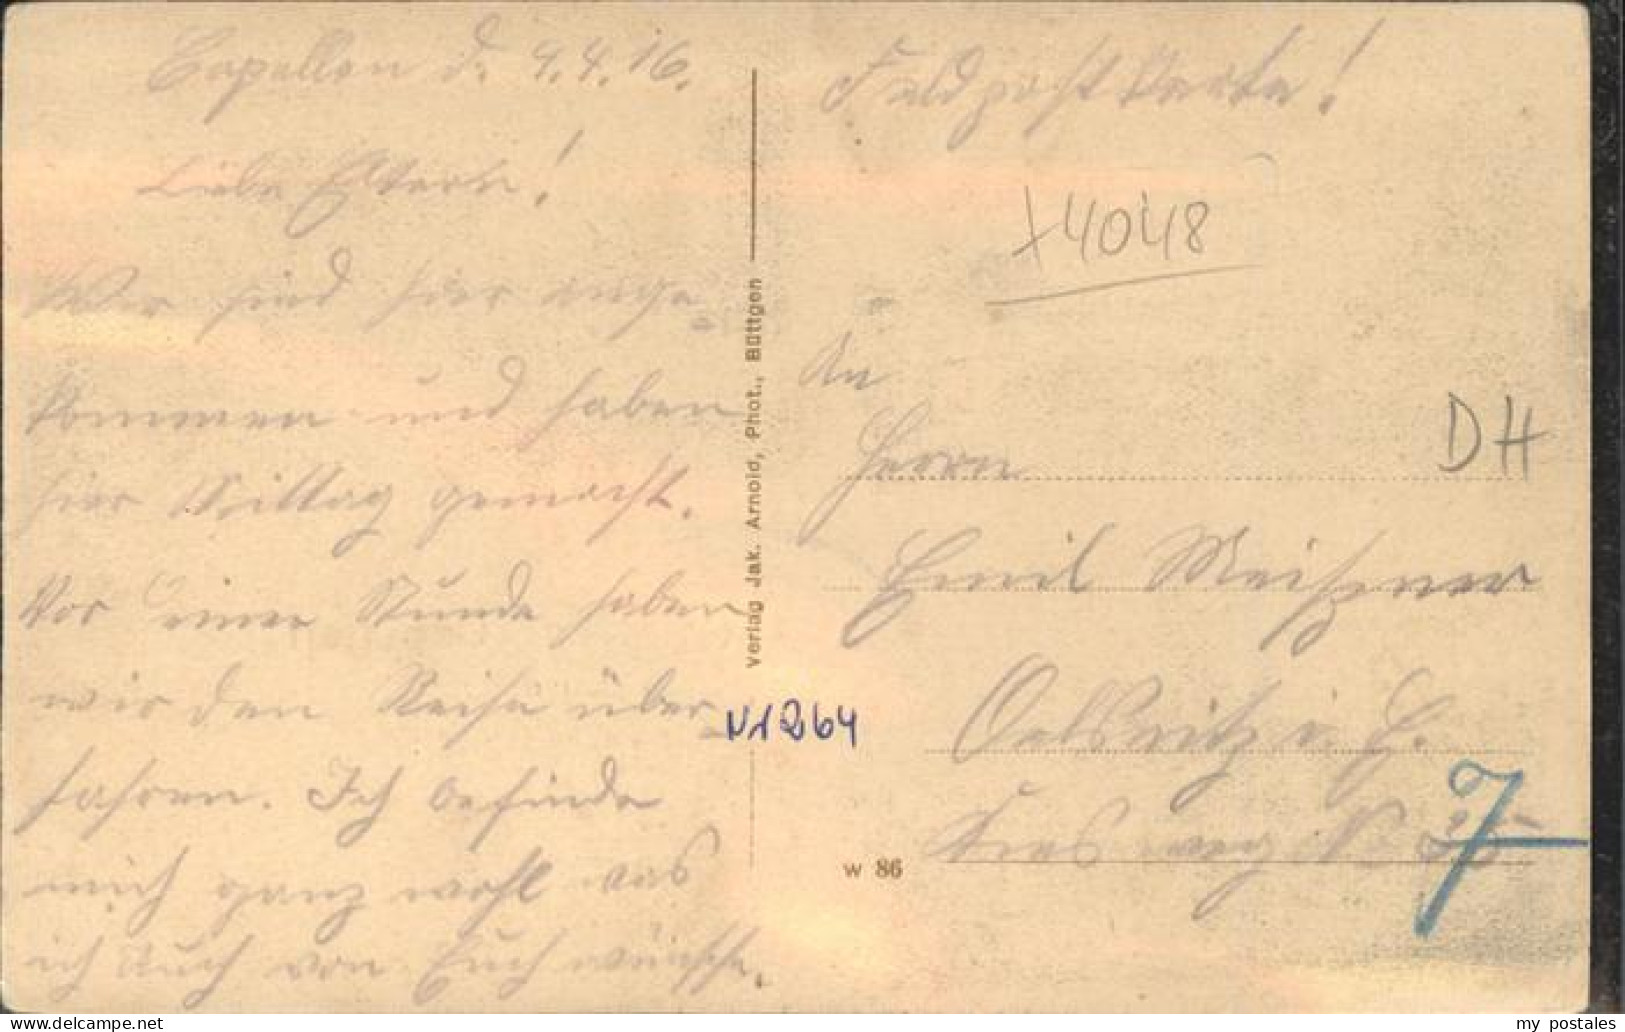 Capellen d. 9.4.16.
Liebe Eltern!
Wir sind hier ange-
kommen und haben
hier Mittag gemacht.
Vor einer Stunde haben
wir den Reise über-
fahren. Ich befinde
mich ganz wohl was
ich Auch von Euch wünsche.
Verlag Jak. Arnold, Phot., Büttgen
Feldpostkarte!
+4048
An
Herrn
DH
Emil Meißner
Oelsnitz i. E.
weg N
7
N1264
W 86
my postales